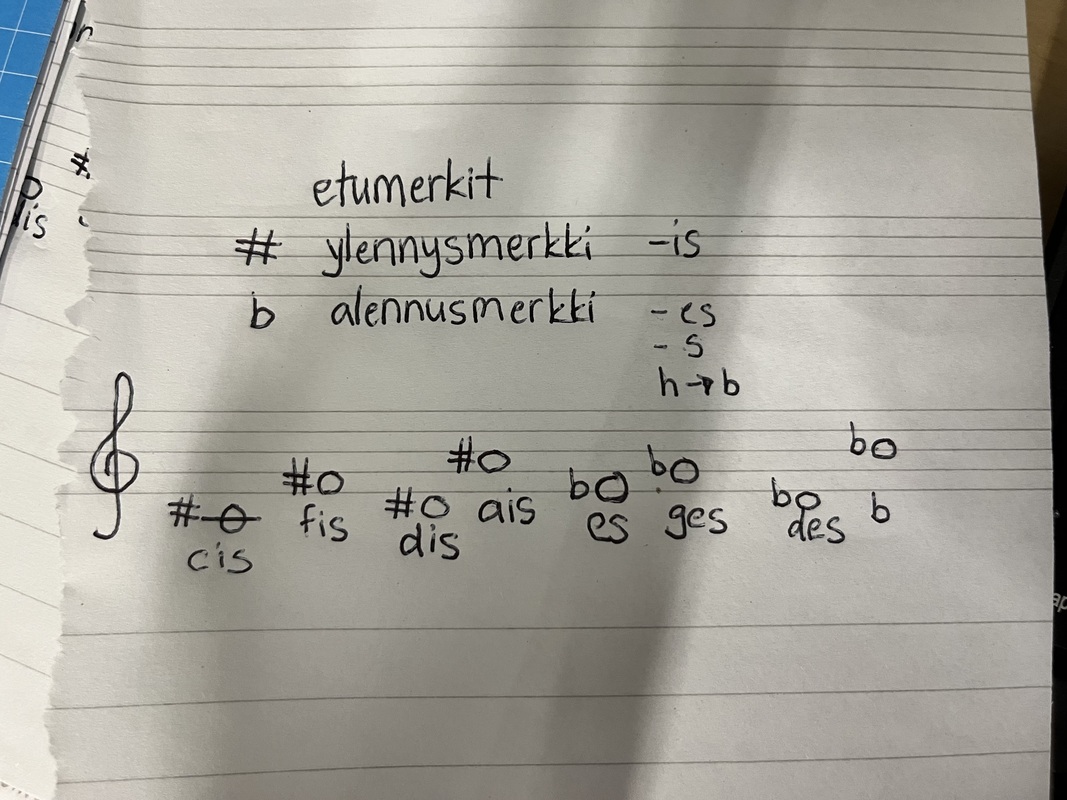 etumerkit
# ylennysmerkki -is
b alennusmerkki - es
- s
h→b
# # # # b b b b
cis fis dis ais es ges des b
is